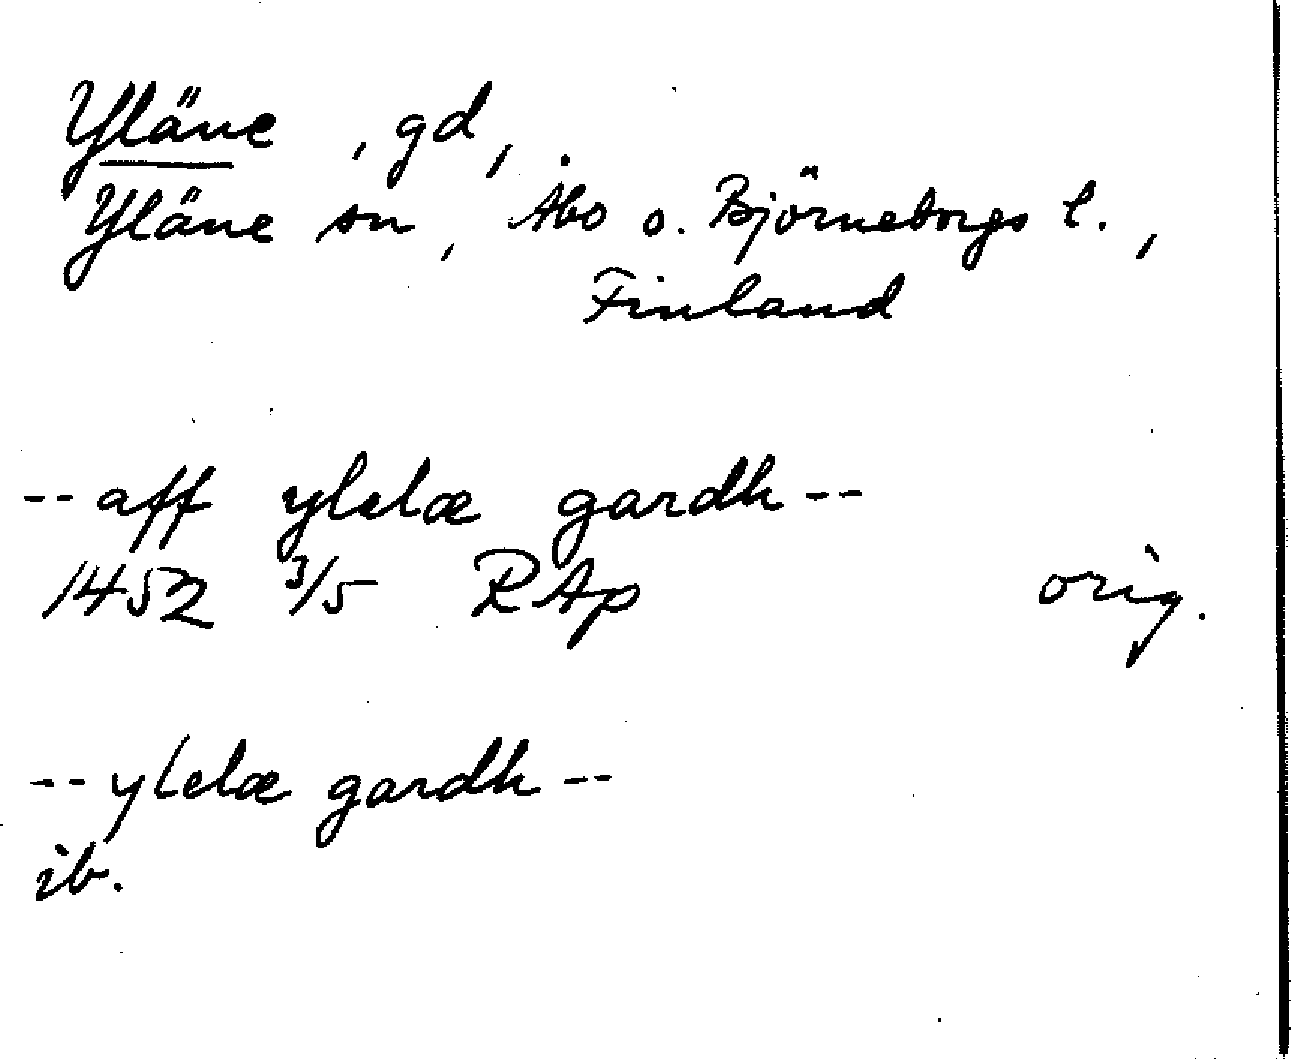 Yläne, gd,
Yläne sn, Åbo o. Björneborgs l.,
Finland
-- aff ylelæ gardh --
1452 3/5 RAp orig.
-- ylelæ gardh --
ib.